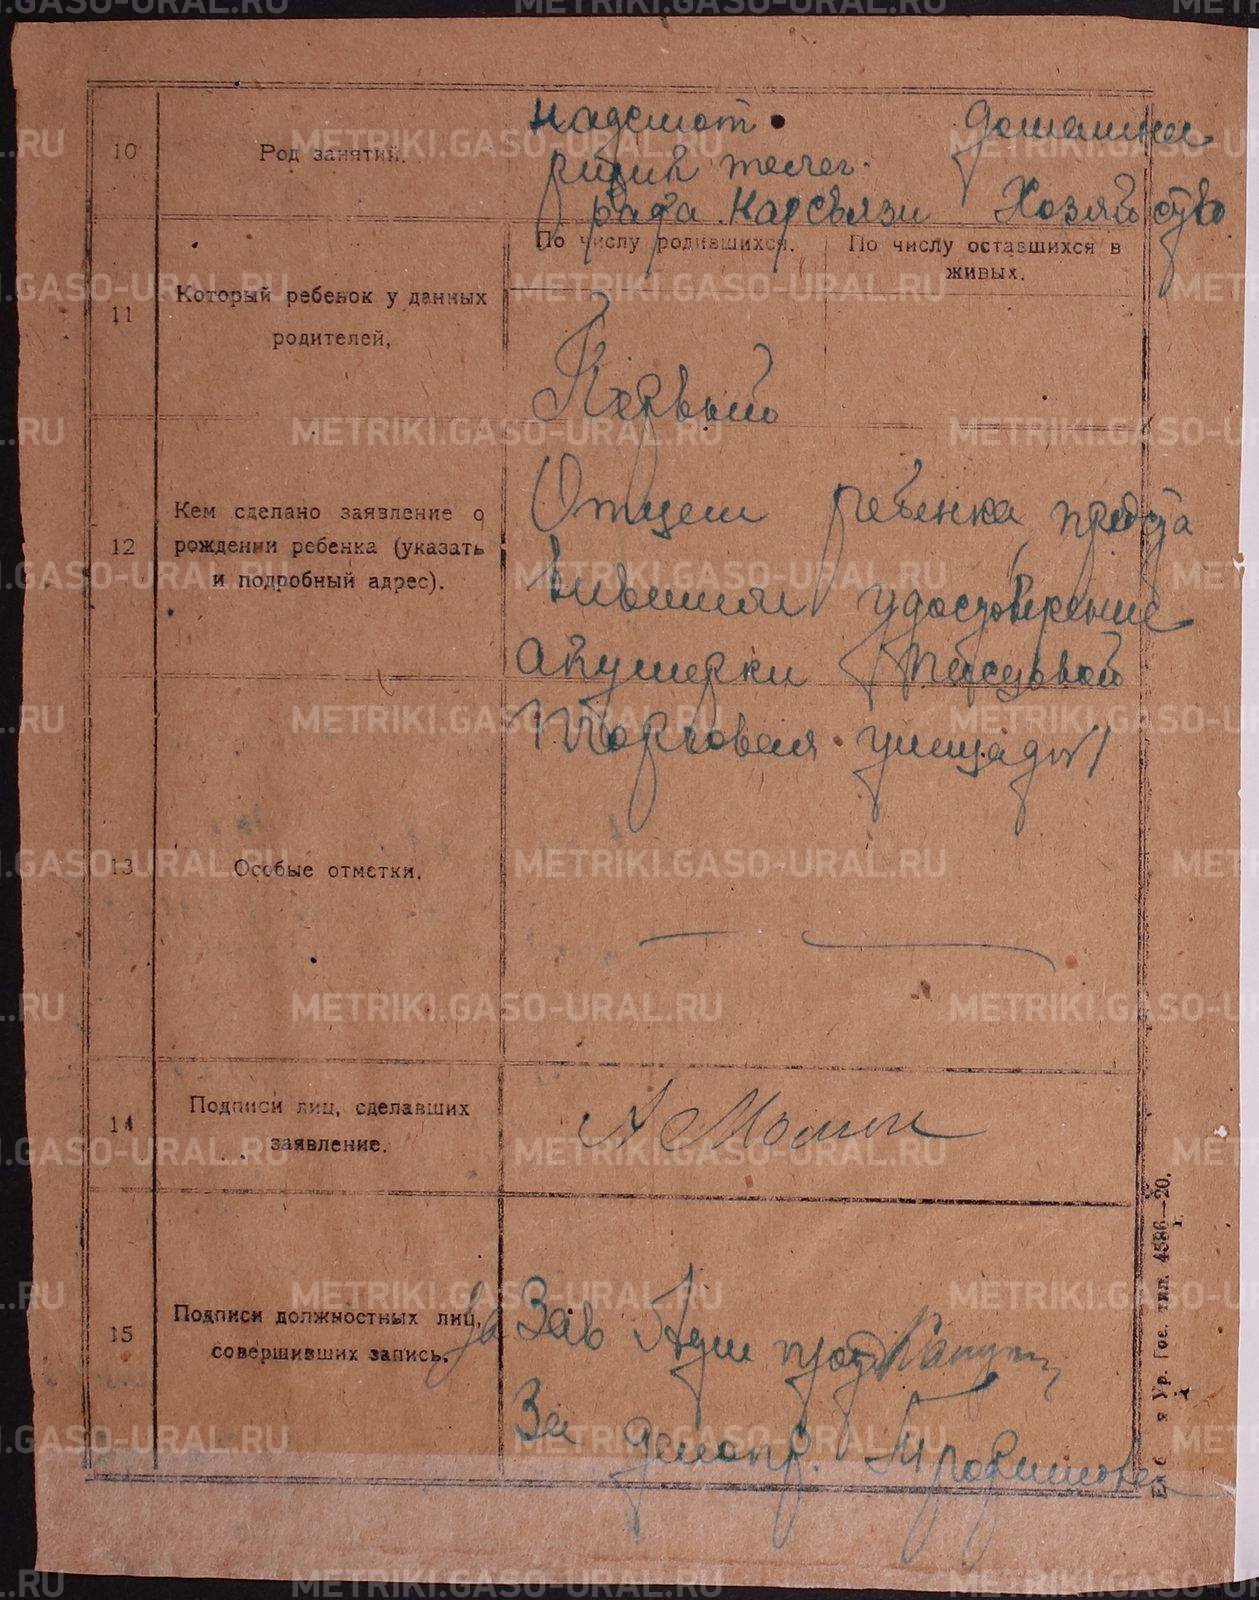 10
Род занятий.
надсмот
рщик телег-
рафа Нарсвязи
домашнее
Хозяйство
11
Который ребенок у данных
родителей,
По числу родившихся.
По числу оставшихся в
живых.
Первый
12
Кем сделано заявление о
рождении ребенка (указать
и подробный адрес).
Отцем ребенка предста
вившим удостоверение
акушерки
Торговая улица д № 1
13
Особые отметки.
14
Подписи лиц, сделавших
заявление.
А
15
Подписи должностных лиц,
совершивших запись.
За Зав
За делопр.
Ур. Гос. тип. 4586—20.
METRIKI.GASO-URAL.RU